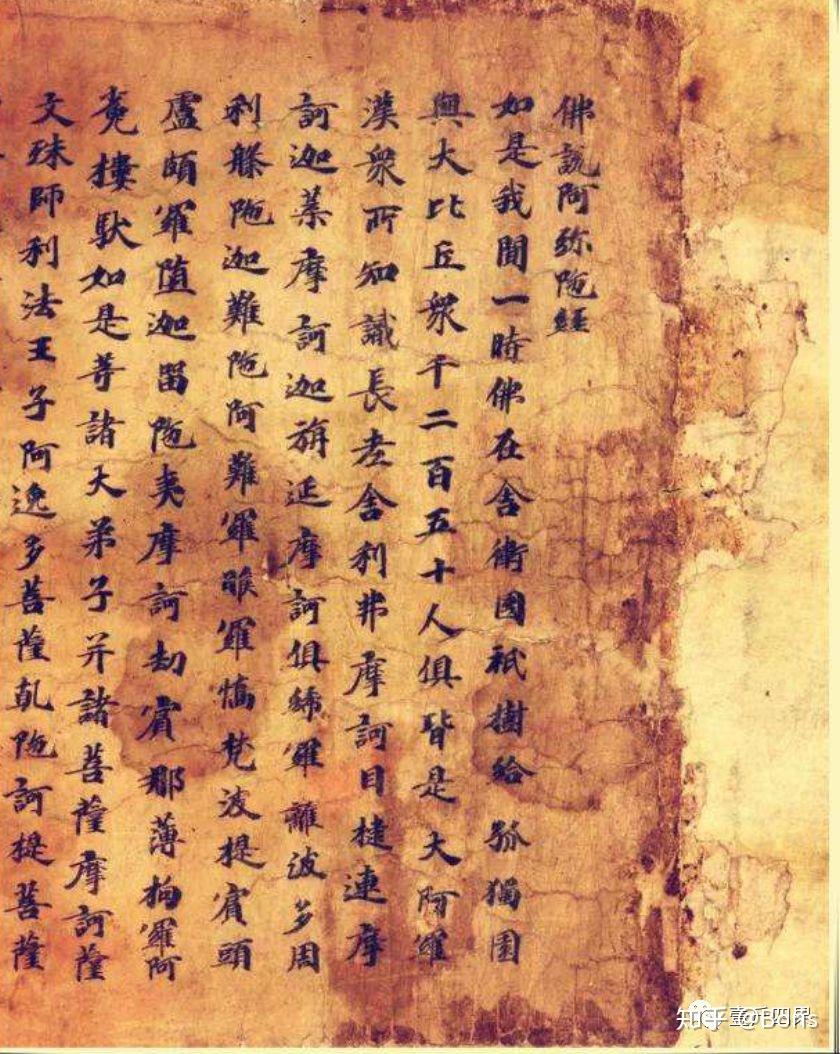 佛說阿弥陁經
如是我聞一時佛在舎衛國祇樹給孤獨園
與大比丘衆千二百五十人俱皆是大阿羅
漢衆所知識長老舎利弗摩訶目揵連摩
訶迦葉摩訶迦旃延摩訶俱絺羅離波多周
利槃陁迦難陁阿難羅睺羅憍梵波提賓頭
盧頗羅堕迦留陁夷摩訶劫賓那薄拘羅阿
㝹樓馱如是等諸大弟子并諸菩薩摩訶薩
文殊師利法王子阿逸多菩薩乹陁訶提菩薩
知乎 @Boris